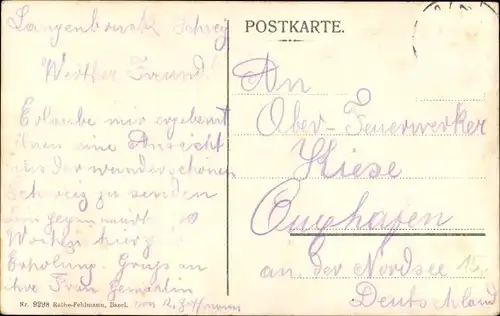 Langenbruck Schweiz
Werther Freund!
Erlaube mir ergebenst
Ihnen eine Ansicht
aus der wunderschönen
Schweiz zu senden
bin gegenwärt. 10
hier z.
Erholung. Gruss an
ihre Frau Gemahlin
von
Nr. 9298 Rathe-Fehlmann, Basel.
POSTKARTE.
An
Ober-Feuerwerker
Kiese
Cuxhafen
an der Nordsee 15
Deutschland